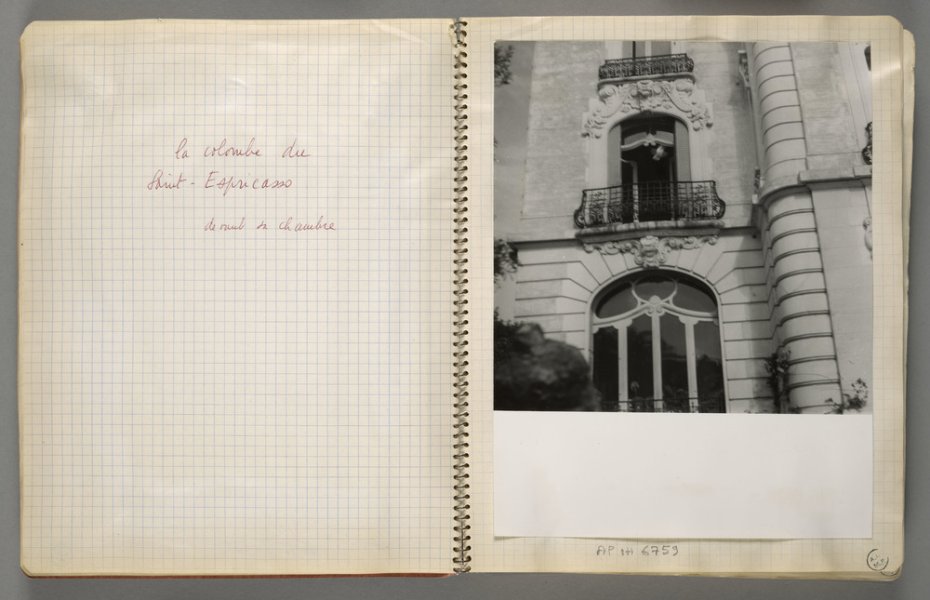 la colombe du
Saint-Espricasso
devant sa chambre
AP H 6759